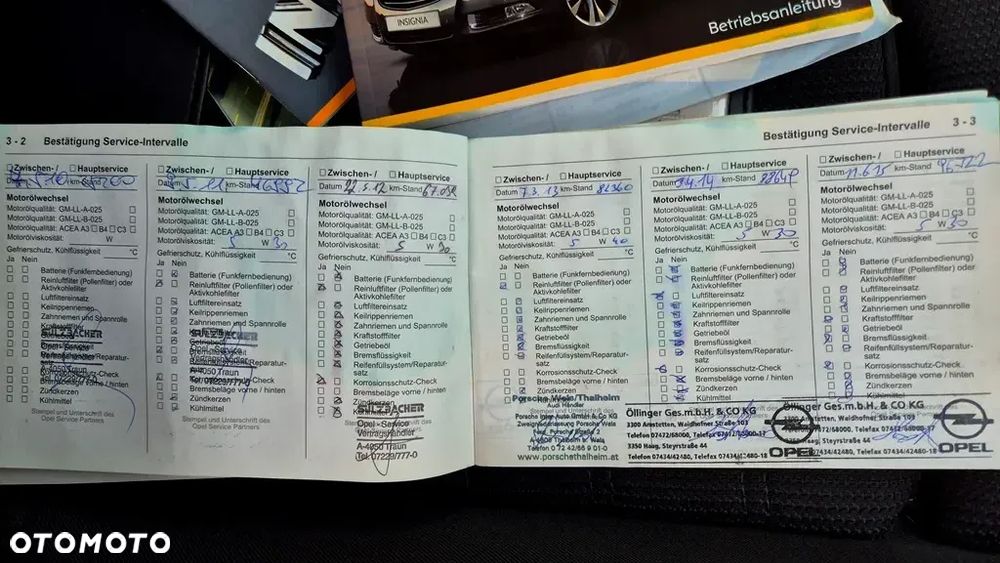 INSIGNIA
Betriebsanleitung
IN
3 - 2 Bestätigung Service-Intervalle
Zwischen-/ Hauptservice
Datum km-Stand
Motorölwechsel
Motorölqualität: GM-LL-A-025
Motorölqualität: GM-LL-B-025
Motorölqualität: ACEA A3 B4 C3
Motorölviskosität: W
Gefrierschutz, Kühlflüssigkeit °C
Ja Nein
Batterie (Funkfernbedienung)
Reinluftfilter (Pollenfilter) oder
Aktivkohlefilter
Luftfiltereinsatz
Keilrippenriemen
Zahnriemen und Spannrolle
Kraftstofffilter
SULZBACHER
Opel - Service
Reifenfüllsystem/Reparatur-
satz
Korrosionsschutz-Check
Bremsbeläge vorne / hinten
Zündkerzen
Kühlmittel
Stempel und Unterschrift des
Opel Service Partners
Zwischen-/ Hauptservice
Datum km-Stand
Motorölwechsel
Motorölqualität: GM-LL-A-025
Motorölqualität: GM-LL-B-025
Motorölqualität: ACEA A3 B4 C3
Motorölviskosität: 5 W 30
Gefrierschutz, Kühlflüssigkeit °C
Ja Nein
Batterie (Funkfernbedienung)
Reinluftfilter (Pollenfilter) oder
Aktivkohlefilter
Luftfiltereinsatz
Keilrippenriemen
Zahnriemen und Spannrolle
Kraftstofffilter
SULZBACHER
Getriebeöl
Bremsflüssigkeit
Opel - Service
A-4050 Traun
Korrosionsschutz-Check
Bremsbeläge vorne / hinten
Zündkerzen
Kühlmittel
Stempel und Unterschrift des
Opel Service Partners
Zwischen-/ Hauptservice
Datum 12.5.12 km-Stand
Motorölwechsel
Motorölqualität: GM-LL-A-025
Motorölqualität: GM-LL-B-025
Motorölqualität: ACEA A3 B4 C3
Motorölviskosität: 5 W 30
Gefrierschutz, Kühlflüssigkeit °C
Ja Nein
Batterie (Funkfernbedienung)
Reinluftfilter (Pollenfilter) oder
Aktivkohlefilter
Luftfiltereinsatz
Keilrippenriemen
Zahnriemen und Spannrolle
Kraftstofffilter
Getriebeöl
Bremsflüssigkeit
Reifenfüllsystem/Reparatur-
satz
Korrosionsschutz-Check
Bremsbeläge vorne / hinten
Zündkerzen
Kühlmittel
SULZBACHER
Opel - Service
Vertragshändler
A-4050 Traun
Tel. 07229/777-0
Bestätigung Service-Intervalle 3 - 3
Zwischen-/ Hauptservice
Datum 7.3.13 km-Stand 82360
Motorölwechsel
Motorölqualität: GM-LL-A-025
Motorölqualität: GM-LL-B-025
Motorölqualität: ACEA A3 B4 C3
Motorölviskosität: 5 W 40
Gefrierschutz, Kühlflüssigkeit °C
Ja Nein
Batterie (Funkfernbedienung)
Reinluftfilter (Pollenfilter) oder
Aktivkohlefilter
Luftfiltereinsatz
Keilrippenriemen
Zahnriemen und Spannrolle
Kraftstofffilter
Getriebeöl
Bremsflüssigkeit
Reifenfüllsystem/Reparatur-
satz
Korrosionsschutz-Check
Bremsbeläge vorne / hinten
Zündkerzen
Kühlmittel
Porsche Wels/Thalheim
Audi Händler
Porsche Inter Auto GmbH & CO KG
Zweigniederlassung Porsche Wels
A-4600 Thalheim b. Wels
www.porschethalheim.at
Zwischen-/ Hauptservice
Datum km-Stand
Motorölwechsel
Motorölqualität: GM-LL-A-025
Motorölqualität: GM-LL-B-025
Motorölqualität: ACEA A3 B4 C3
Motorölviskosität: 5 W 30
Gefrierschutz, Kühlflüssigkeit °C
Ja Nein
Batterie (Funkfernbedienung)
Reinluftfilter (Pollenfilter) oder
Aktivkohlefilter
Luftfiltereinsatz
Keilrippenriemen
Zahnriemen und Spannrolle
Kraftstofffilter
Getriebeöl
Bremsflüssigkeit
Reifenfüllsystem/Reparatur-
satz
Korrosionsschutz-Check
Bremsbeläge vorne / hinten
Zündkerzen
Kühlmittel
Öllinger Ges.m.b.H. & CO KG
3300 Amstetten, Waidhofner Straße 103
Telefon 07472/68000, Telefax
3350 Haag, Steyrstraße 44
Telefon 07434/42480, Telefax 07434/42480-18
OPEL
Zwischen-/ Hauptservice
Datum 11.6.15 km-Stand
Motorölwechsel
Motorölqualität: GM-LL-A-025
Motorölqualität: GM-LL-B-025
Motorölqualität: ACEA A3 B4 C3
Motorölviskosität: 5 W 30
Gefrierschutz, Kühlflüssigkeit °C
Ja Nein
Batterie (Funkfernbedienung)
Reinluftfilter (Pollenfilter) oder
Aktivkohlefilter
Luftfiltereinsatz
Keilrippenriemen
Zahnriemen und Spannrolle
Kraftstofffilter
Getriebeöl
Bremsflüssigkeit
Reifenfüllsystem/Reparatur-
satz
Korrosionsschutz-Check
Bremsbeläge vorne / hinten
Zündkerzen
Kühlmittel
Öllinger Ges.m.b.H. & CO KG
Amstetten, Waidhofner Straße 103
Haag, Steyrstraße 44
07434/42480, Telefax 07434/42480-18
OPEL
OTOMOTO